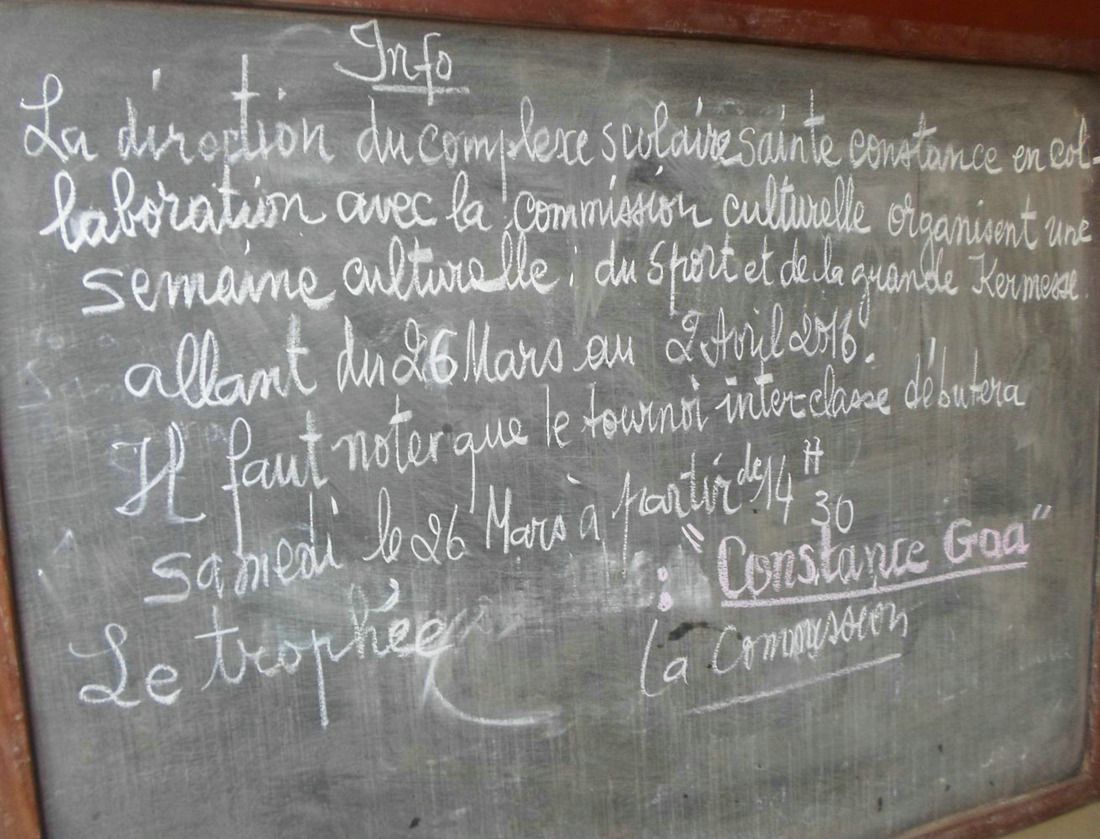 Info
La direction du complexe scolaire sainte constance en col-
laboration avec la commission culturelle organisent une
semaine culturelle : du sport et de la grande Kermesse.
allant du 26 Mars au 2 Avril 2016.
Il faut noter que le tournoi inter-classe débutera
samedi le 26 Mars à partir de 14H30
Le trophée : "Constance Goa"
La Commission